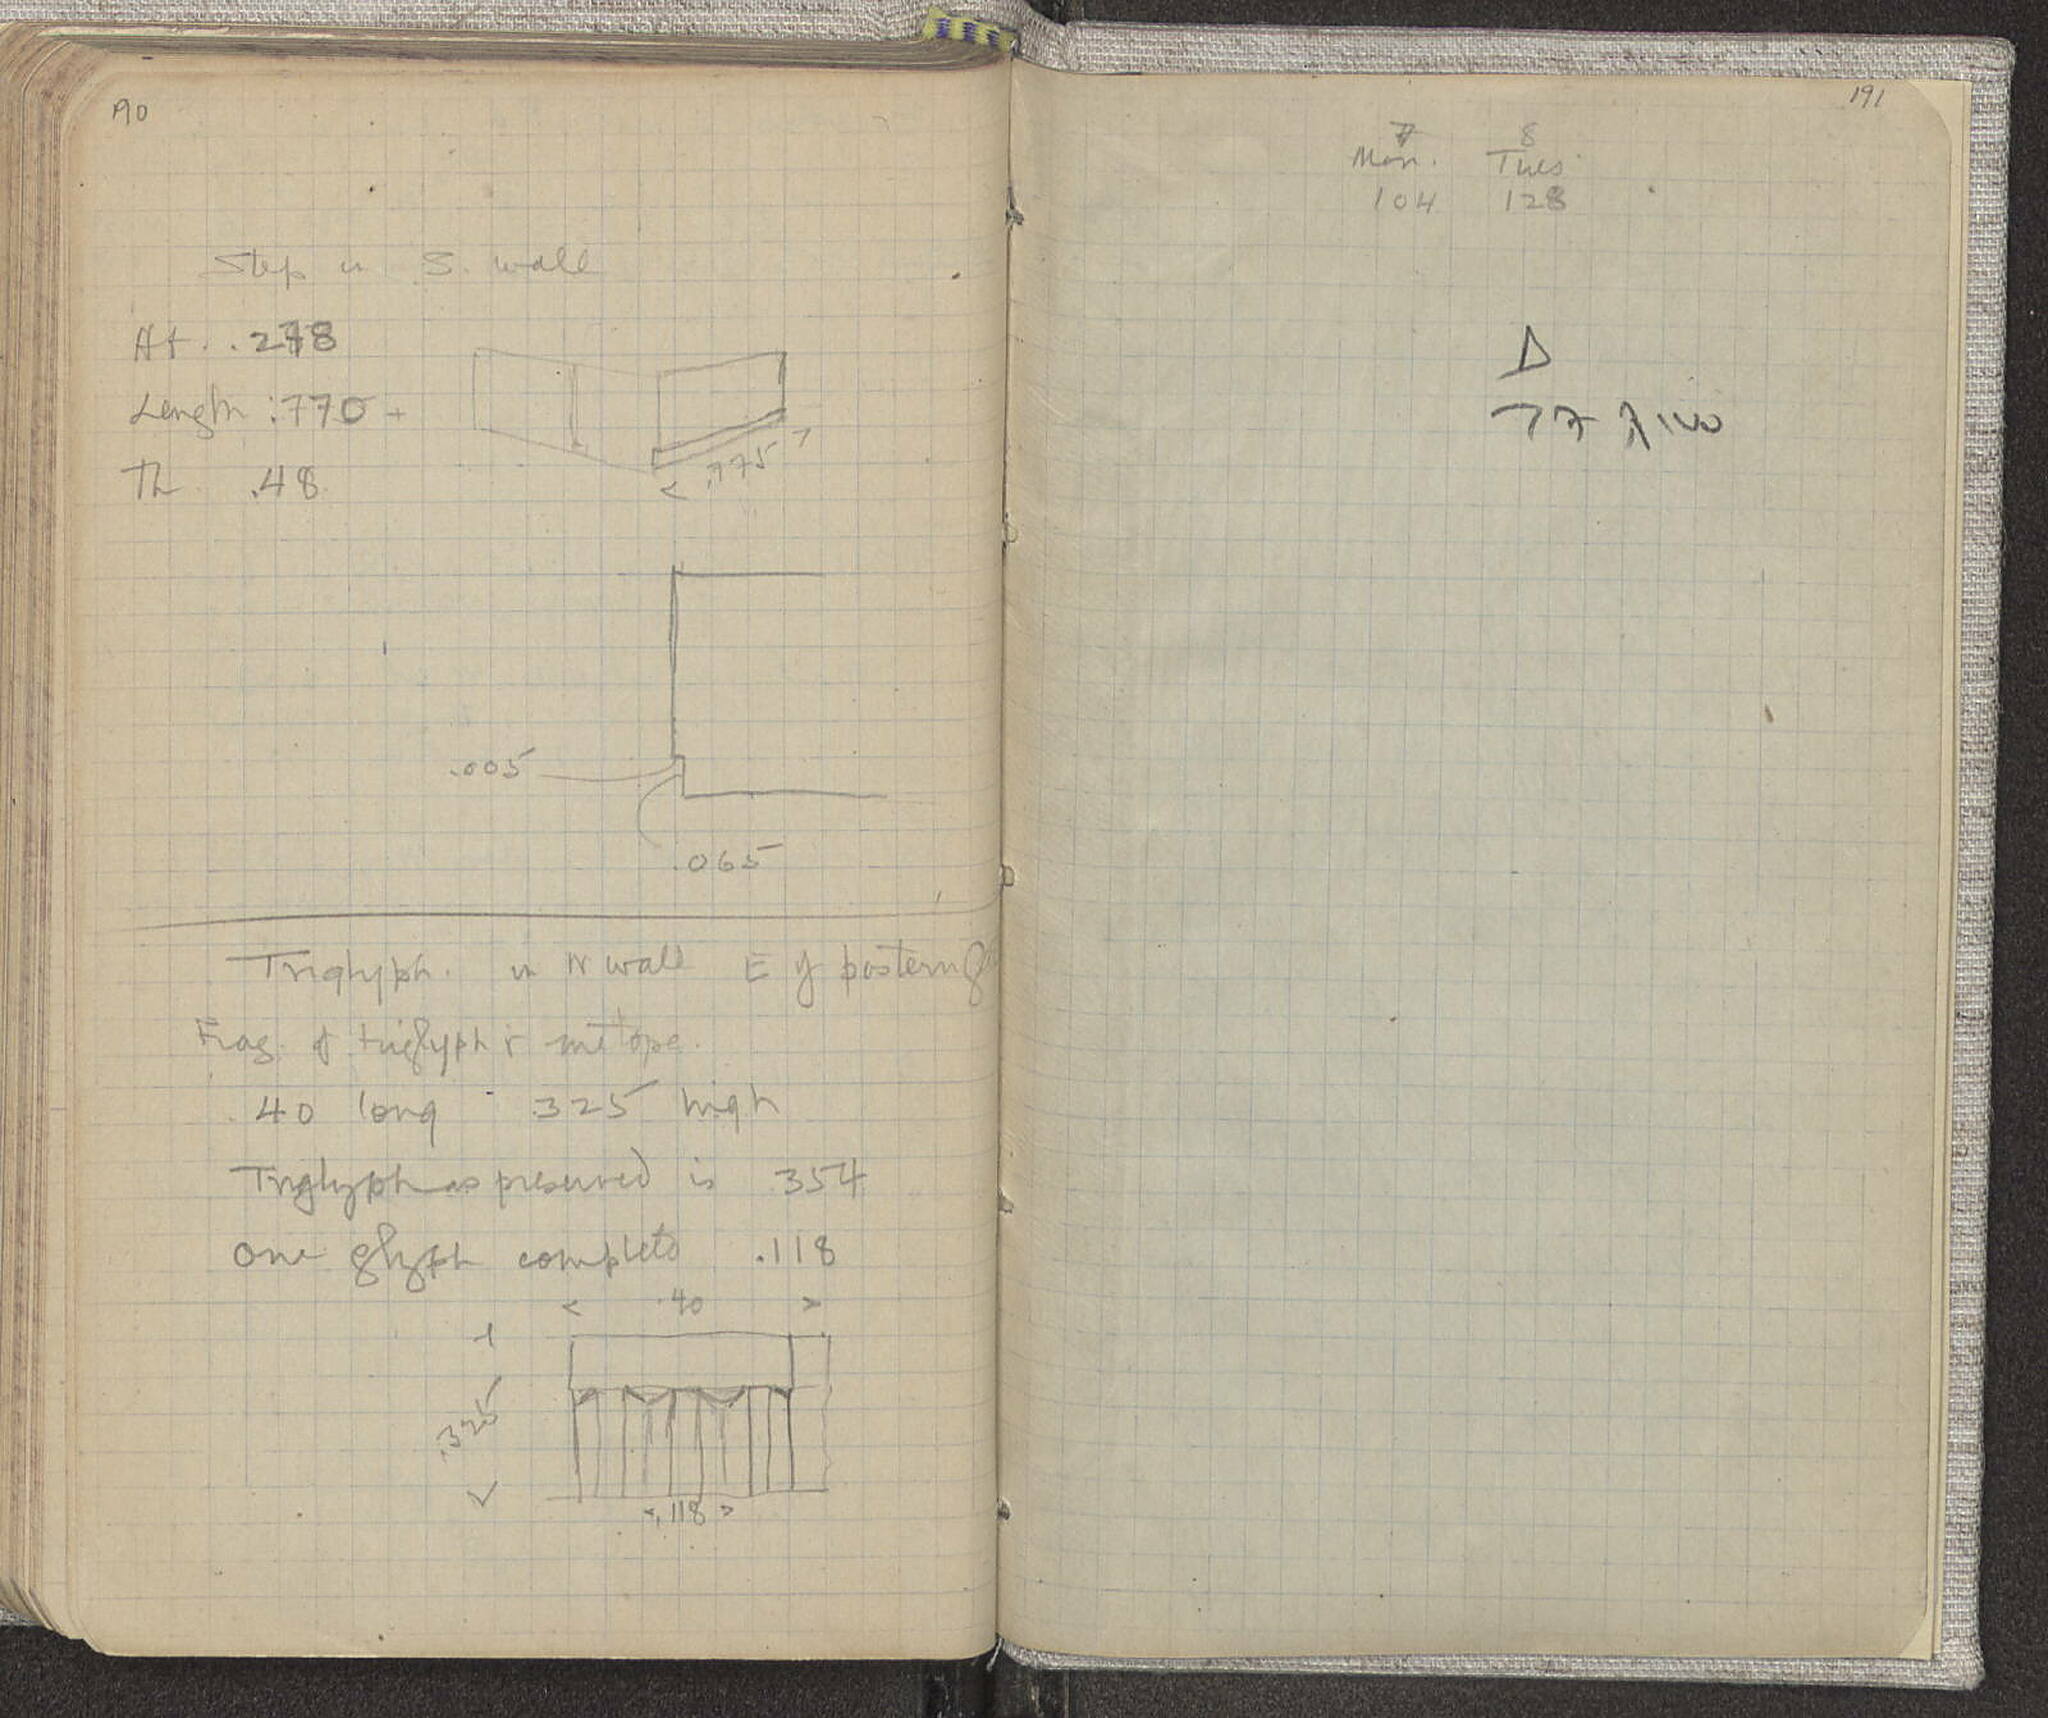 190
Step in S. wall
Ht. .278
Length .770+
Th .48
.775
.005
.065
Triglyph. in N wall E of postern
Frag. of triglyph & metope.
.40 long .325 high
Triglyph as preserved is .354
One glyph complete .118
.40
.325
.118
191
7 8
Mon. Tues
104 128
Δ